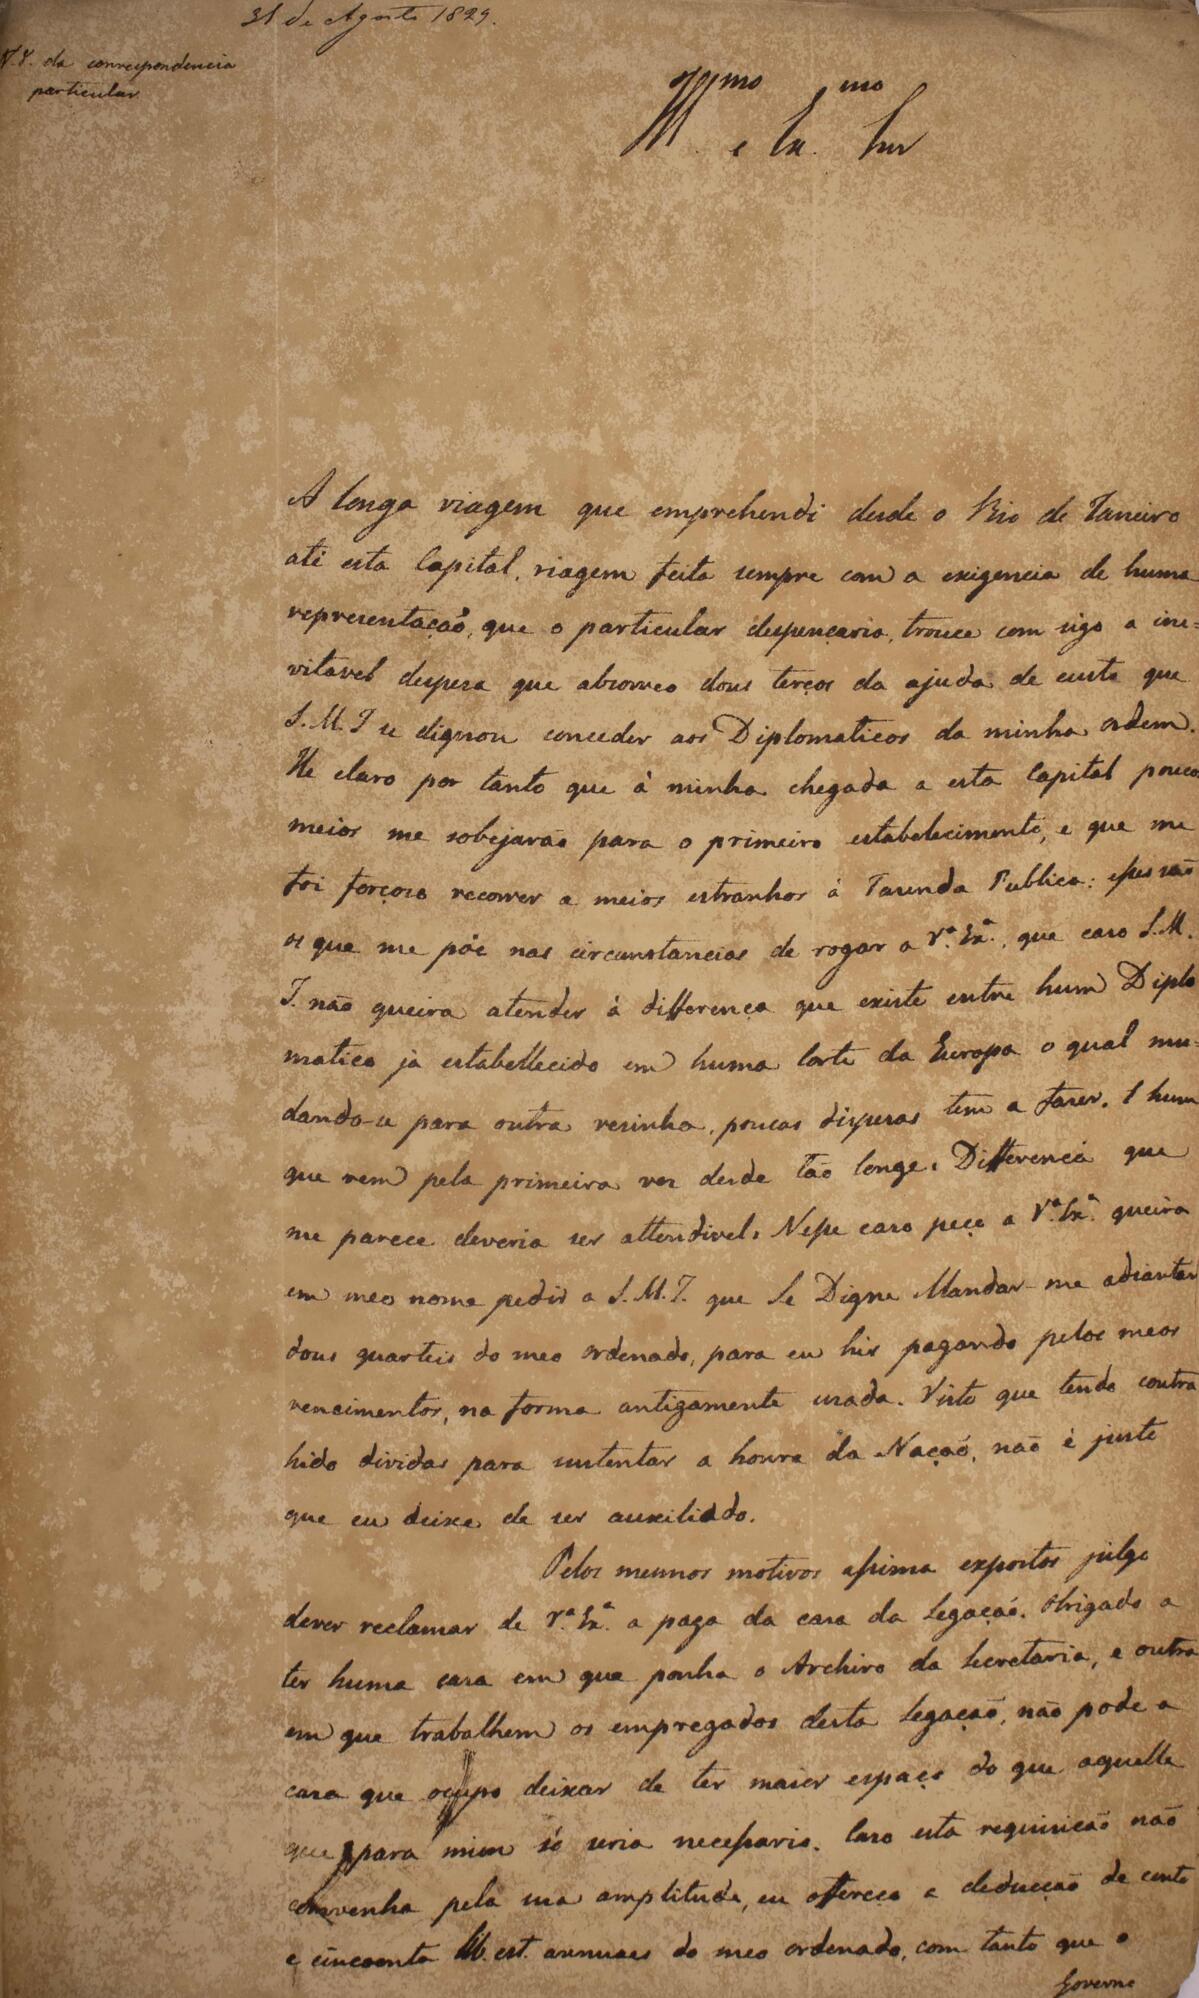 31 de Agosto 1829.
N.º 4. da correspondencia
particular
Illmo e Exmo Snr
A longa viagem que emprehendi desde o Rio de Janeiro
até esta Capital, viagem feita sempre com a exigencia de huma
representação, que o particular despençaria, trouce com sigo a ine=
vitavel despesa que absorveo dous terços da ajuda de custo que
S.M.I se dignou conceder aos Diplomaticos da minha ordem.
He claro por tanto que á minha chegada a esta Capital poucos
meios me sobejarão para o primeiro estabelecimento, e que me
foi forçoso recorrer a meios estranhos á Fasenda Publica: esses são
os que me põe nas circunstancias de rogar a Vª. Exª., que caso S.M.
I. não queira atender á differença que existe entre hum Diplo
matico já estabellecido em huma Corte da Europa o qual mu=
dando-se para outra vesinha, poucas dispesas tem a faser. E hum
que vem pela primeira ves desde tão longe. Differença que
me parece deveria ser attendivel. Nesse caso peço a Vª. Exª. queira
em meo nome pedir a S.M.I. que Se Digne Mandar-me adiantar
dous quarteis do meo ordenado, para eu hir pagando pelos meos
vencimentos, na forma antigamente usada. Visto que tendo contra
hido dividas para sustentar a honra da Nação, não é justo
que eu deixe de ser auxiliado.
Pelos mesmos motivos assima expostos julgo
dever reclamar de Vª. Exª. a paga da casa da Legação. Obrigado a
ter huma casa em que ponha o Archivo da Secretaria, e outra
em que trabalhem os empregados desta Legação, não pode a
casa que ocupo deixar de ter maior espaço do que aquelle
que para mim só seria necessario. Caso esta requisição não
convenha pela sua amplitude, eu offereço a deducção de cento
e cincoenta lib. est. annuaes do meo ordenado, com tanto que o
Governo